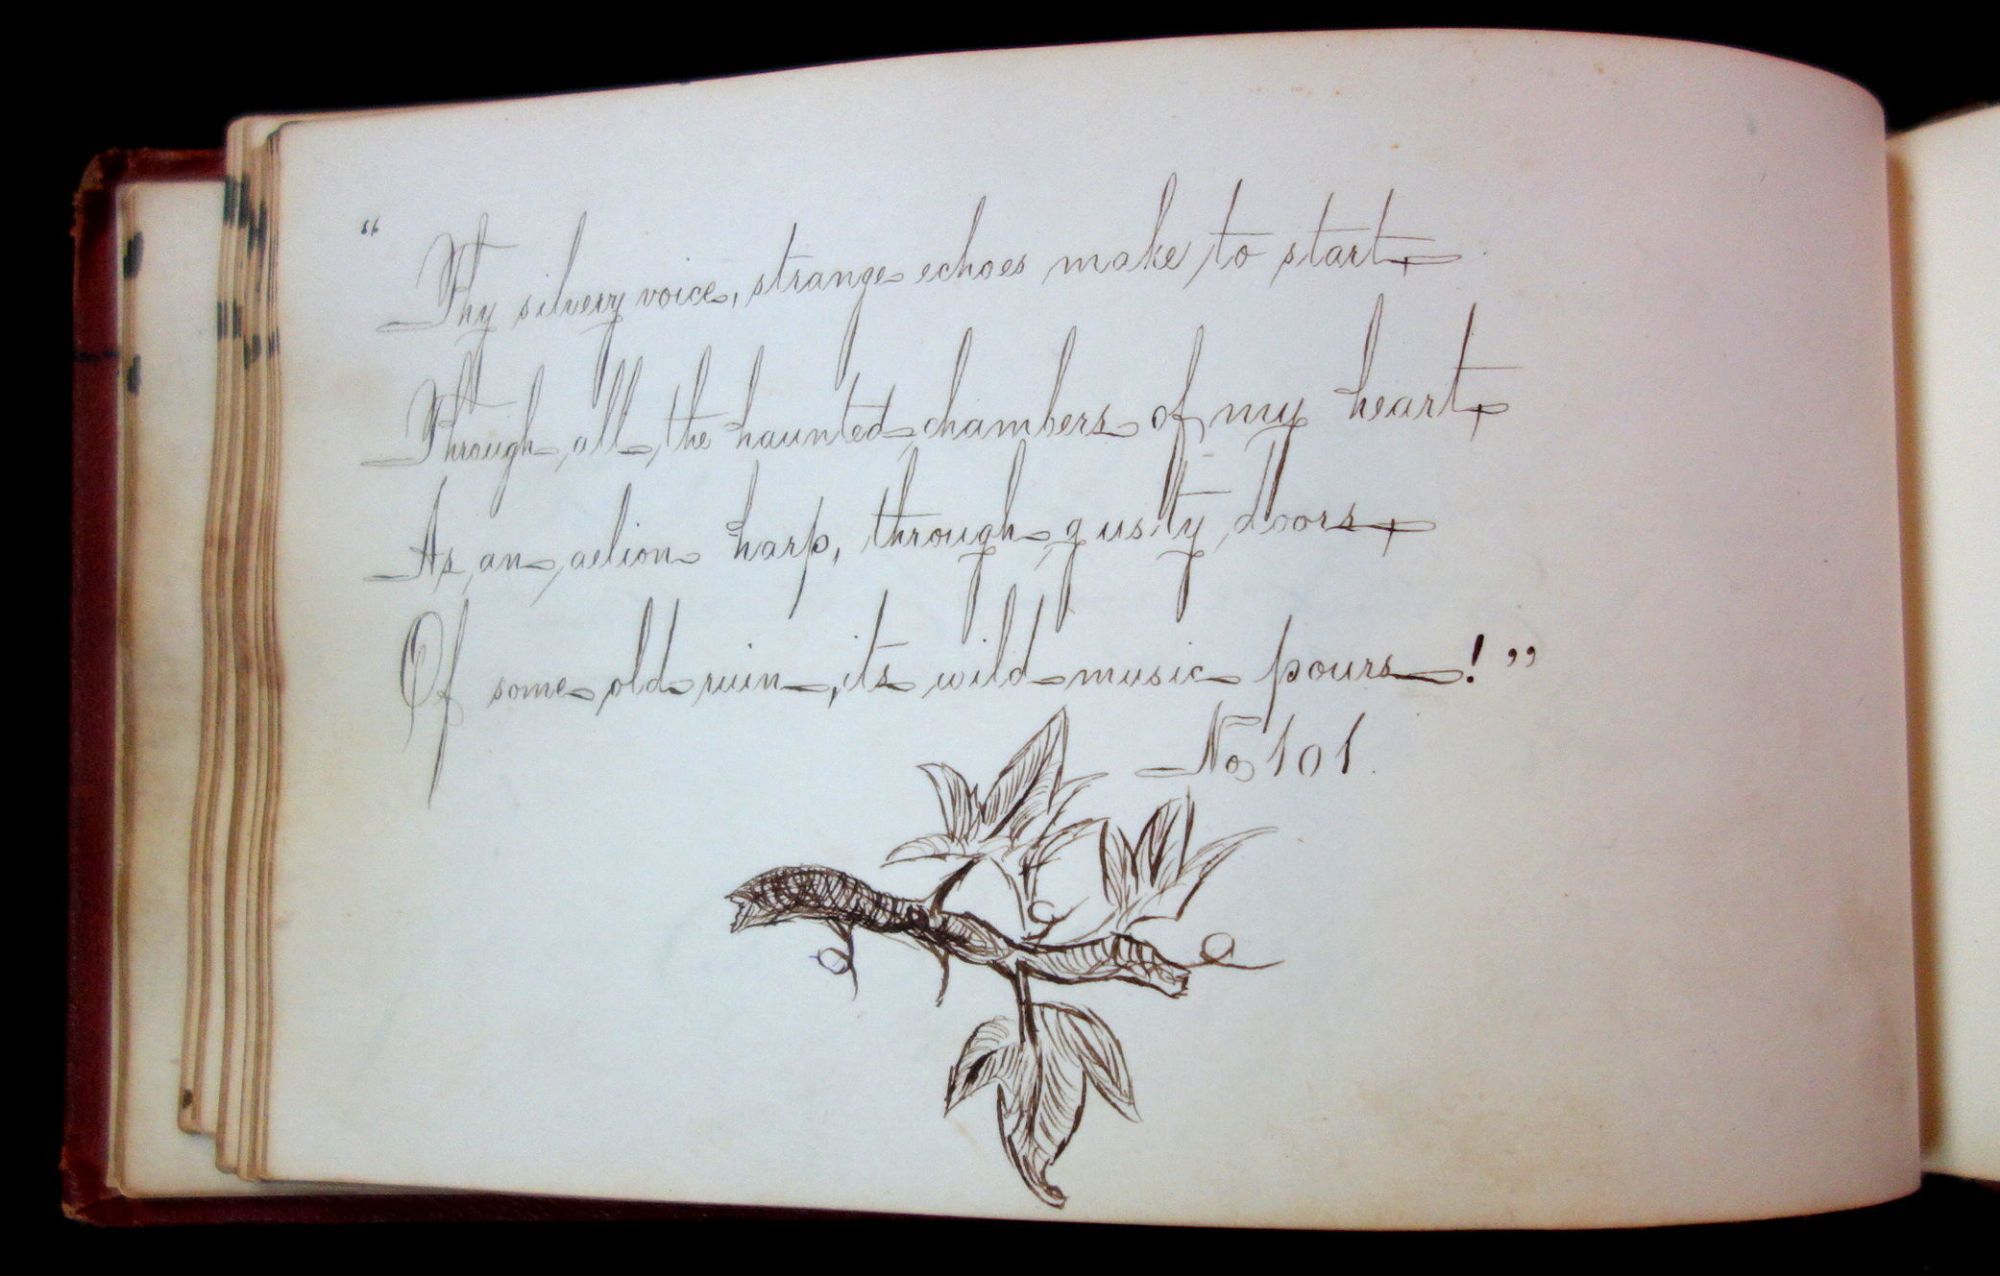 “Thy silvery voice, strange echoes make to start
Through all the haunted chambers of my heart,
As an aelion harp, through gusty doors,
Of some old ruin, its wild music pours!”
No 101.